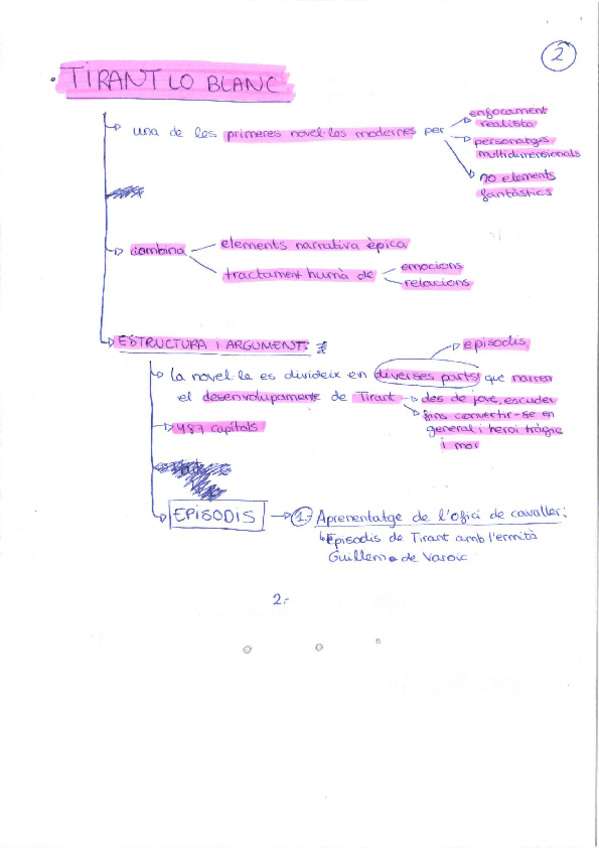 2
· TIRANT LO BLANC
una de les primeres novel·les modernes per
enfocament
realista
personatges
multidimensionals
no elements
fantàstics
combina
elements narrativa èpica
tractament humà de
emocions
relacions
ESTRUCTURA I ARGUMENT:
episodis
la novel·la es divideix en diverses parts que narren
el desenvolupamente de Tirant
des de jove, escuder
fins convertir-se en
general i heroi tràgic
i mor
487 capítols
EPISODIS
1.- Aprenentatge de l'ofici de cavaller:
Episodis de Tirant amb l'ermità
Guillem de Varoic
2.-